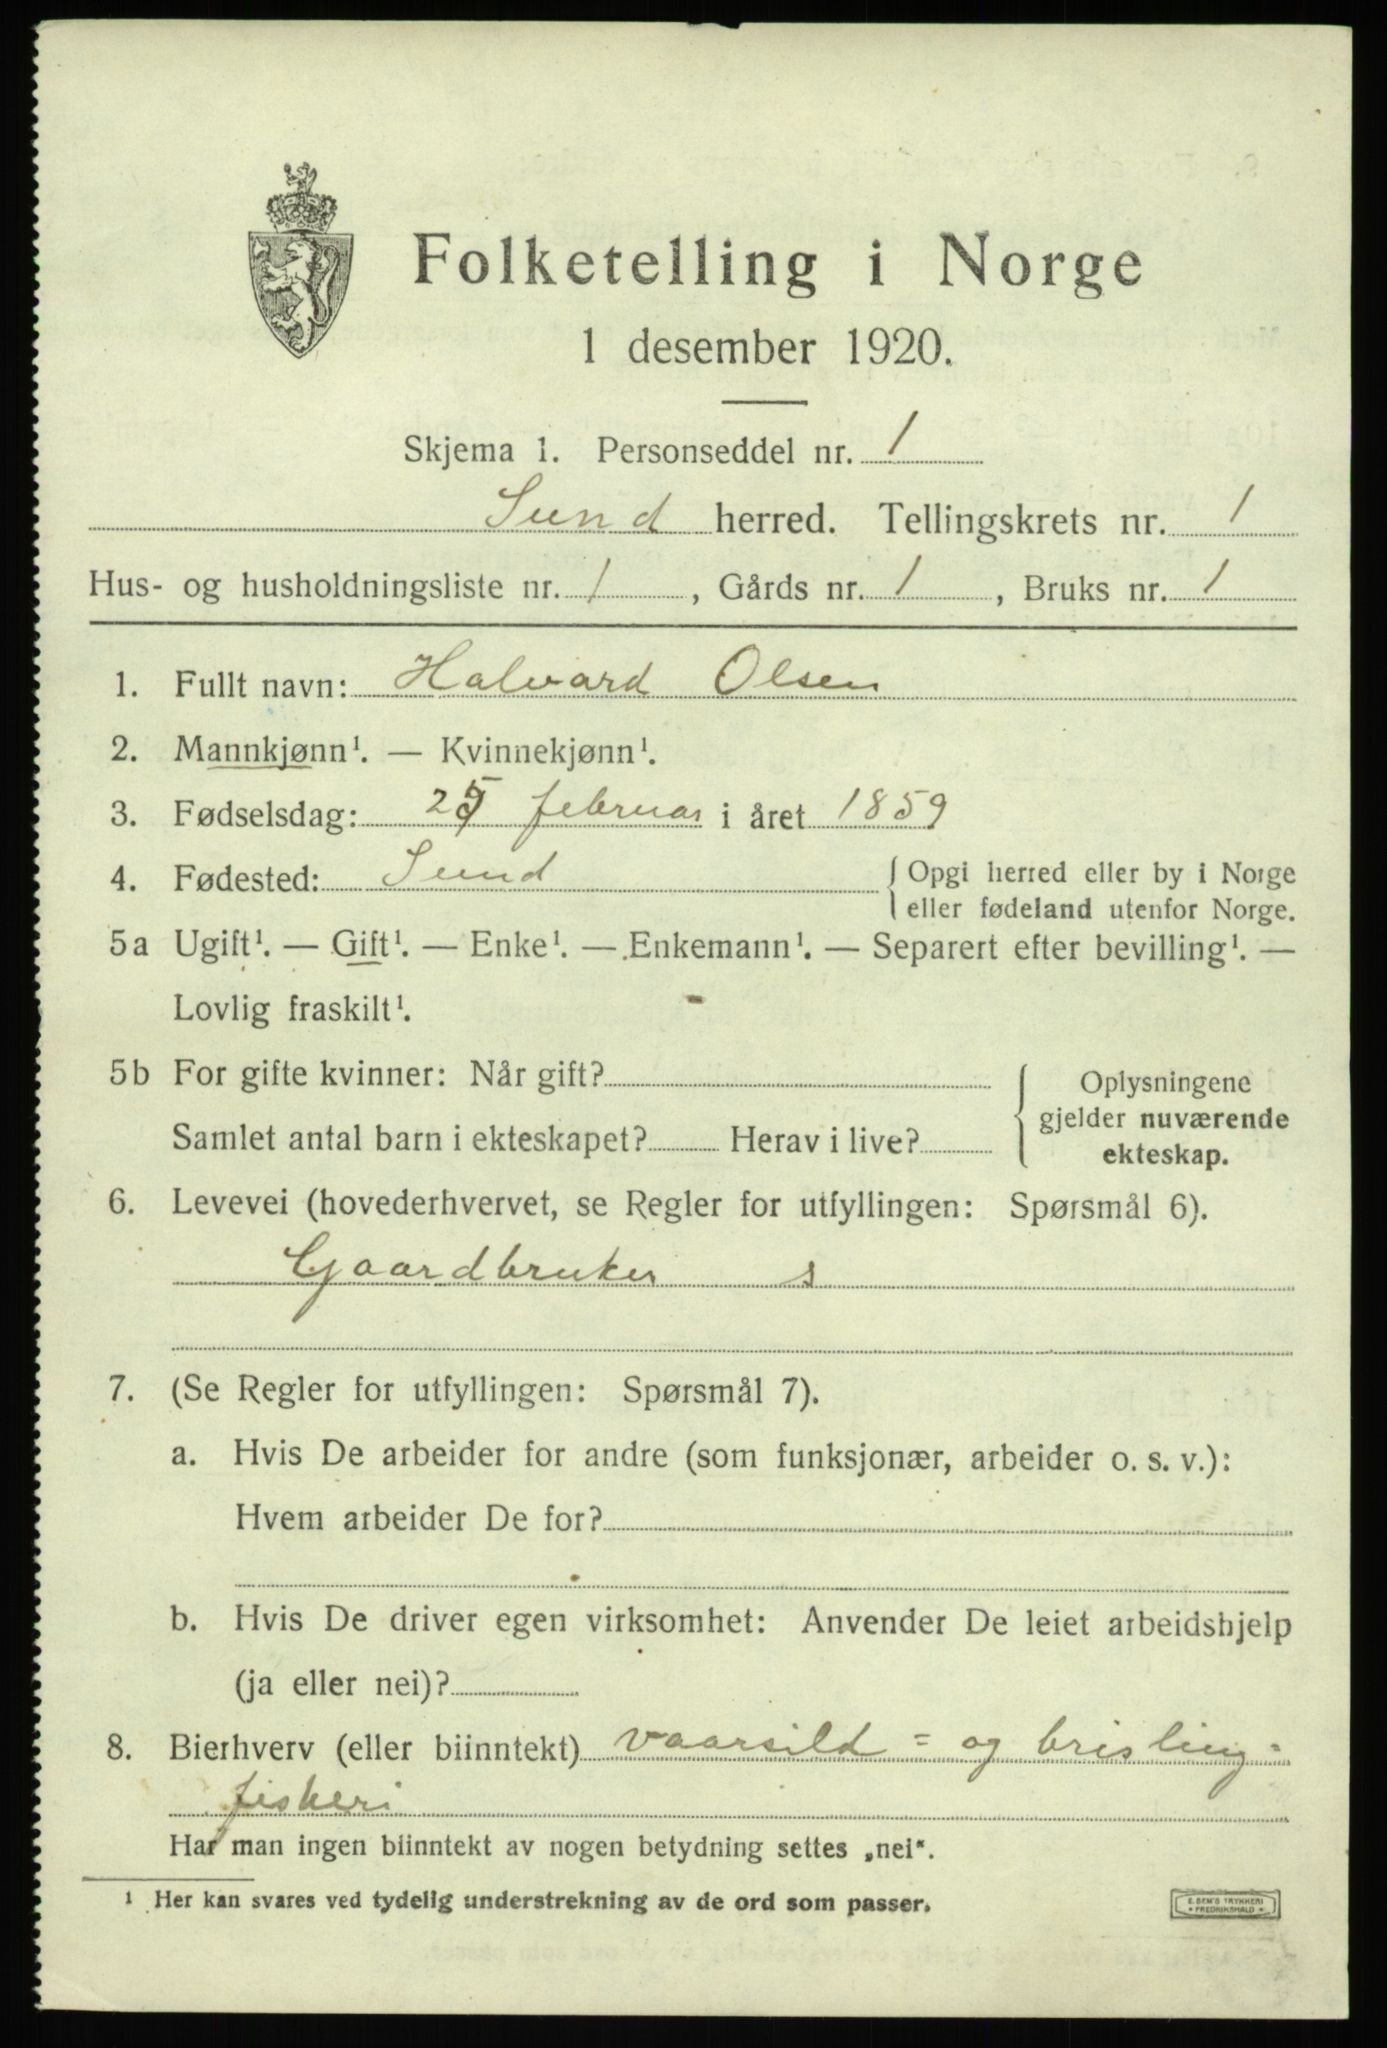 Folketelling i Norge
1 desember 1920.
Skjema 1. Personseddel nr. 1
Sund herred. Tellingskrets nr. 1
Hus- og husholdningsliste nr. 1, Gårds nr. 1, Bruks nr. 1
1. Fullt navn: Halvard Olsen
2. Mannkjønn¹. — Kvinnekjønn¹.
3. Fødselsdag: 25 februar i året 1859
4. Fødested: Sund { Opgi herred eller by i Norge
eller fødeland utenfor Norge.
5a Ugift¹. — Gift¹. — Enke¹. — Enkemann¹. — Separert efter bevilling¹. —
Lovlig fraskilt¹.
5b For gifte kvinner: Når gift?
Samlet antal barn i ekteskapet? Herav i live?
Oplysningene
gjelder nuværende
ekteskap.
6. Levevei (hovederhvervet, se Regler for utfyllingen: Spørsmål 6).
Gaardbruker s
7. (Se Regler for utfyllingen: Spørsmål 7).
a. Hvis De arbeider for andre (som funksjonær, arbeider o. s. v.):
Hvem arbeider De for?
b. Hvis De driver egen virksomhet: Anvender De leiet arbeidshjelp
(ja eller nei)?
8. Bierhverv (eller biinntekt) vaarsild= og brisling=
fiskeri
Har man ingen biinntekt av nogen betydning settes „nei".
¹ Her kan svares ved tydelig understrekning av de ord som passer.
E. SEM'S TRYKKERI
* FREDRIKSHALD *